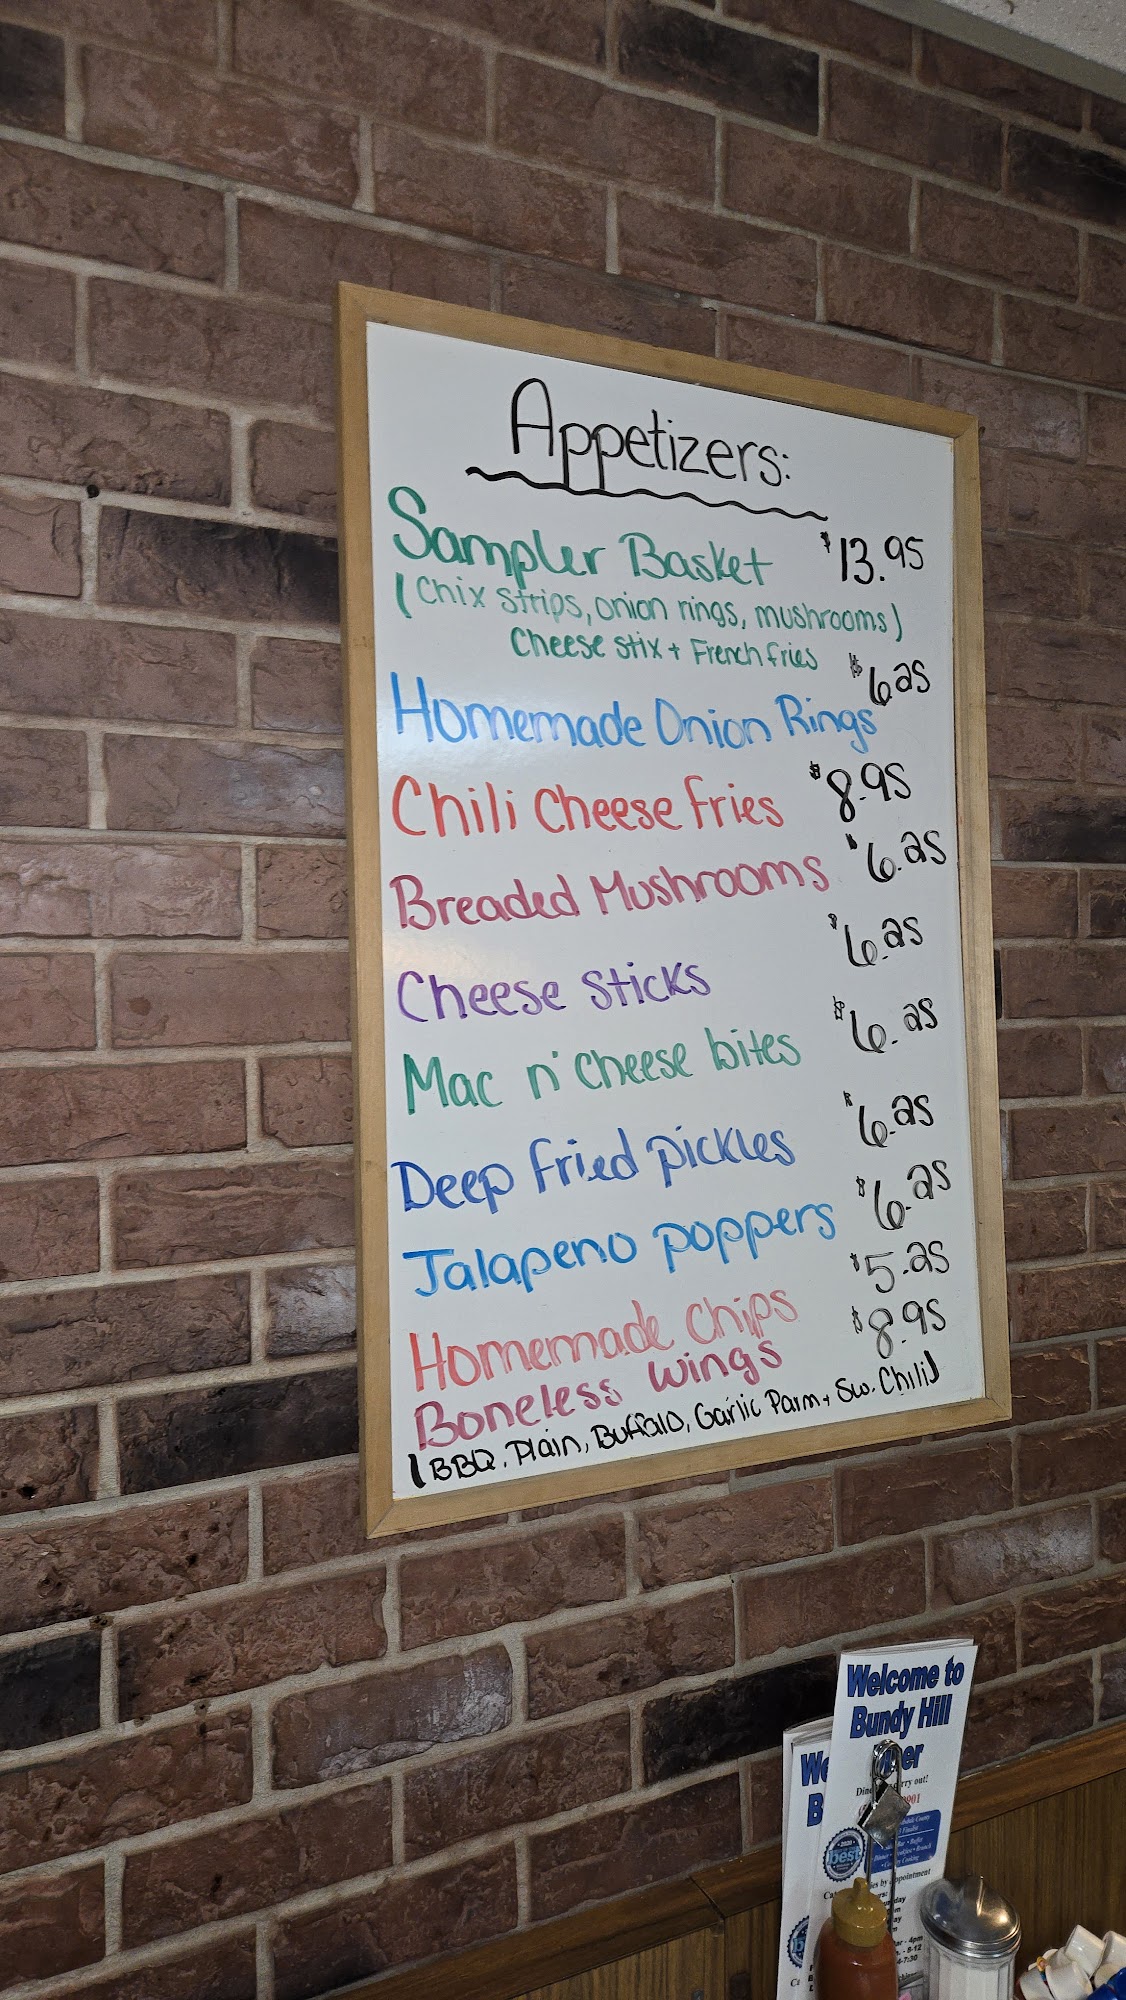 Appetizers:
Sampler Basket $13.95
(Chix strips, onion rings, mushrooms)
Cheese stix + French fries
Homemade Onion Rings $6.25
Chili Cheese Fries $8.95
Breaded Mushrooms $6.25
Cheese Sticks $6.25
Mac n' Cheese bites $6.25
Deep Fried pickles $6.25
Jalapeno poppers $6.25
Homemade Chips $5.25
Boneless Wings $8.95
(BBQ, Plain, Buffalo, Garlic Parm + Sw. Chili)
Welcome to
Bundy Hill
best